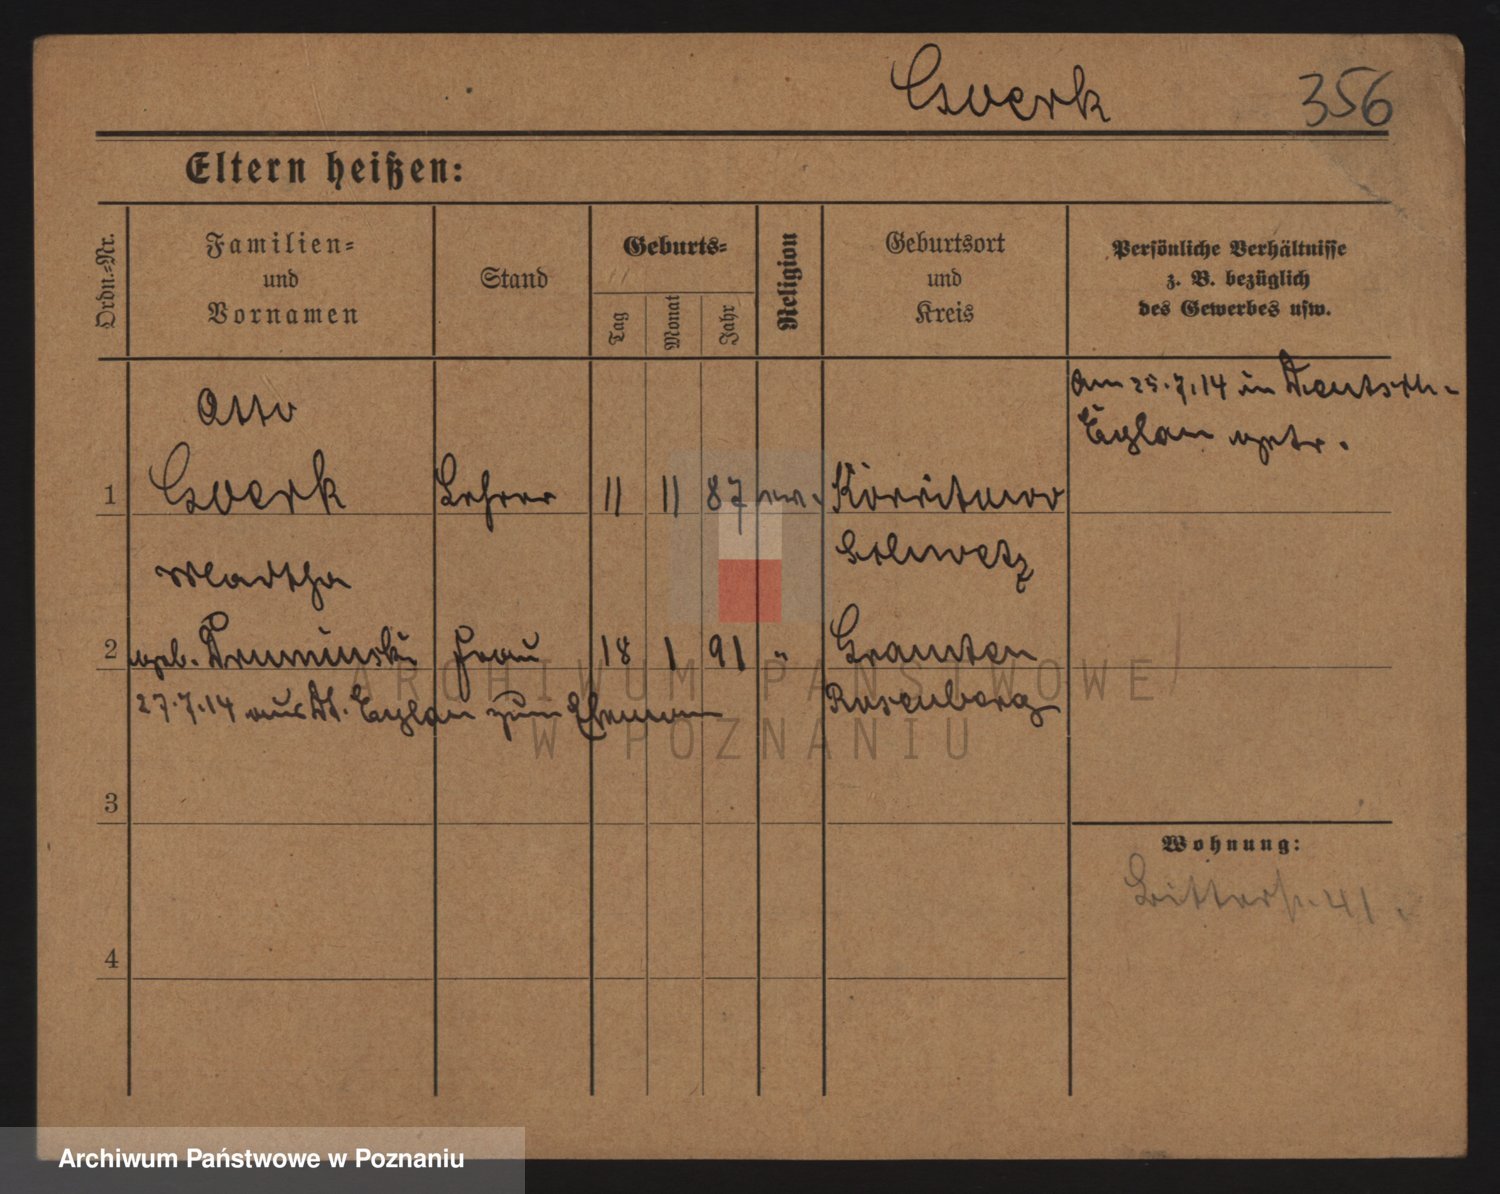 Gverk 356
Eltern heißen:
Ordn.=Nr.
Familien=
und
Vornamen
Stand
Geburts=
Tag
Monat
Jahr
Religion
Geburtsort
und
Kreis
Persönliche Verhältnisse
z. B. bezüglich
des Gewerbes usw.
Am 25.7.14 in Deutsch-
Eylau getr.
Otto
1 Lehrer 11 11 87 ev.
Schwetz
Martha
2 geb. Druminski Frau 18 1 91 " Gramten
27.7.14 aus Dt. Eylau zum Ehemann Rosenberg
3
Wohnung:
Ritterstr. 41.
4
ARCHIWUM PAŃSTWOWE
W POZNANIU
Archiwum Państwowe w Poznaniu